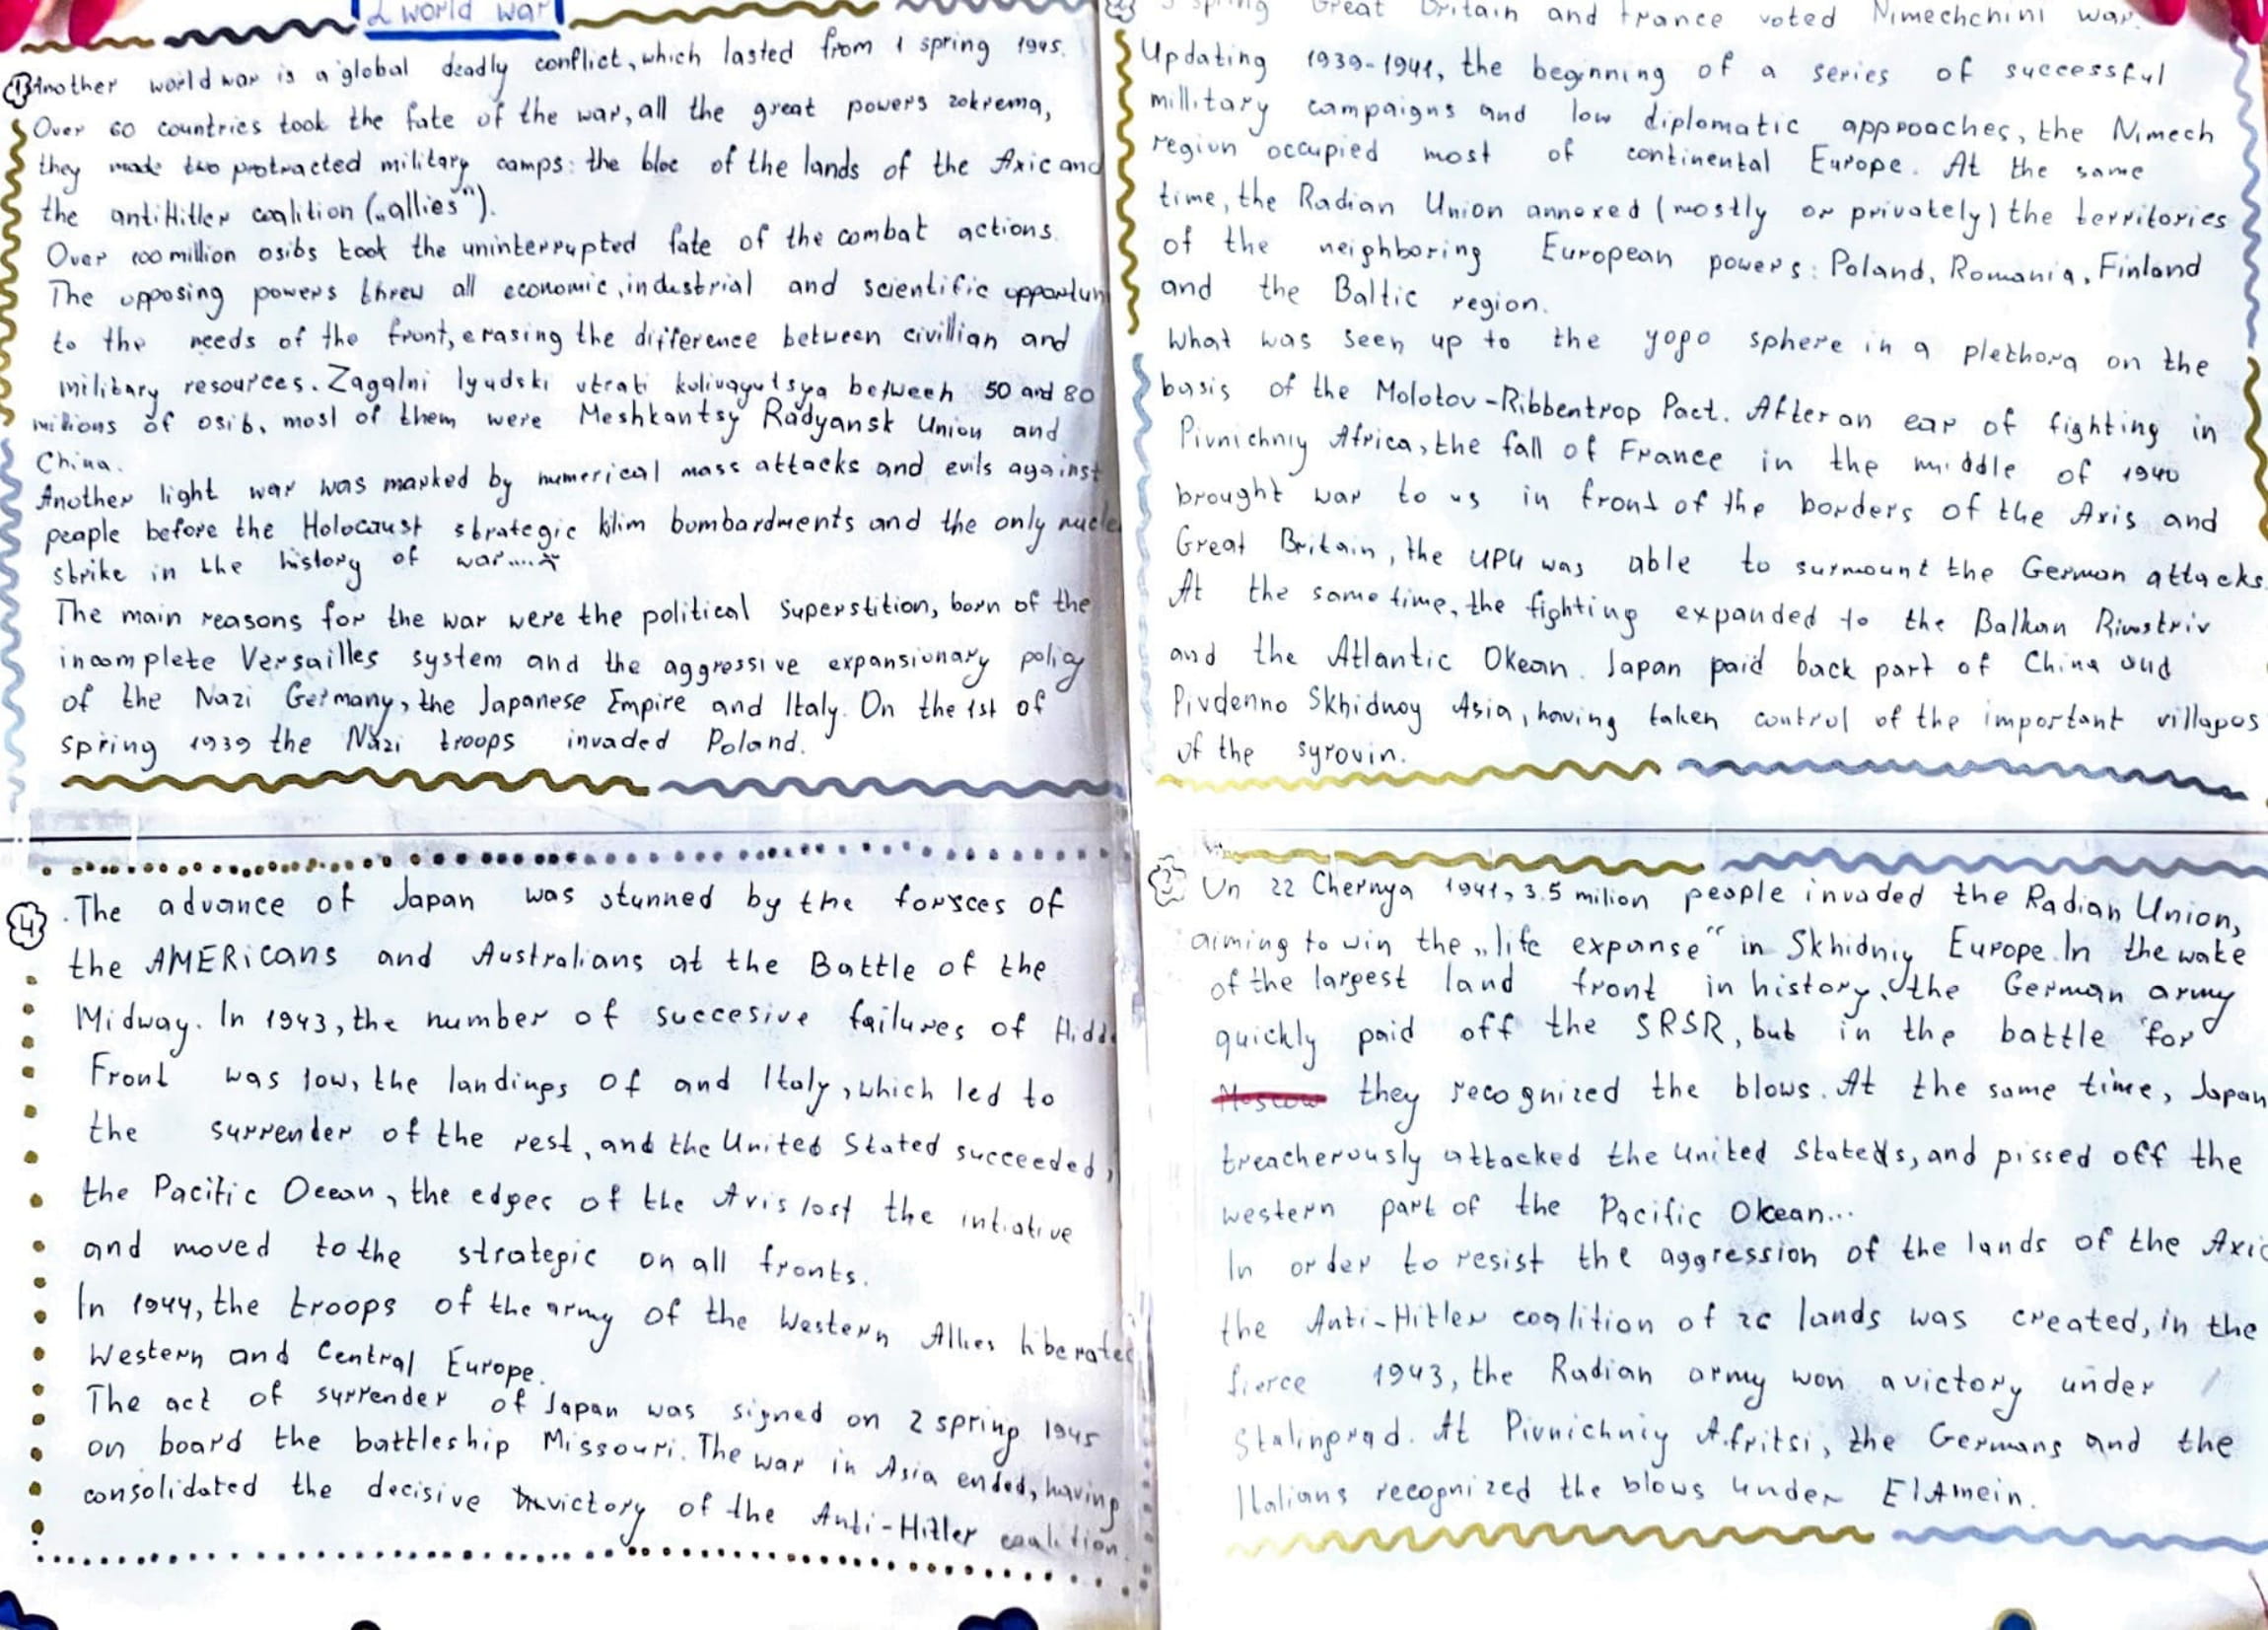 2 world war
1 Another world war is a global deadly conflict, which lasted from 1 spring 1945.
Over 60 countries took the fate of the war, all the great powers zokrema,
they made two protracted military camps: the bloc of the lands of the Axic and
the antiHitler coalition („allies").
Over 100 million osibs took the uninterrupted fate of the combat actions.
The opposing powers threw all economic, industrial and scientific opportun
to the needs of the front, erasing the difference between civillian and
military resources. Zagalni lyudski vtrati kolivayutsya between 50 and 80
milions of osib, most of them were Meshkantsy Radyansk Union and
China.
Another light war was marked by numerical mass attacks and evils against
people before the Holocaust strategic kilim bombardments and the only nucle
strike in the history of war....
The main reasons for the war were the political superstition, born of the
incomplete Versailles system and the aggressive expansionary policy
of the Nazi Germany, the Japanese Empire and Italy. On the 1st of
spring 1939 the Nazi troops invaded Poland.
3 spring Great Britain and France voted Nimechchini war.
Updating 1939-1941, the beginning of a series of successful
millitary campaigns and low diplomatic approaches, the Nimech
region occupied most of continental Europe. At the same
time, the Radian Union annexed (mostly or privately) the territories
of the neighboring European powers: Poland, Romania, Finland
and the Baltic region.
What was seen up to the yogo sphere in a plethora on the
basis of the Molotov-Ribbentrop Pact. After an ear of fighting in
Pivnichniy Africa, the fall of France in the middle of 1940
brought war to us in front of the borders of the Axis and
Great Britain, the UPU was able to surmount the German attacks.
At the same time, the fighting expanded to the Balkan Rivostriv
and the Atlantic Okean. Japan paid back part of China and
Pivdenno Skhidnoy Asia, having taken control of the important villages
of the syrovin.
3 On 22 Chernya 1941, 3.5 milion people invaded the Radian Union,
aiming to win the „life expanse" in Skhidniy Europe. In the wake
of the largest land front in history, the German army
quickly paid off the SRSR, but in the battle for
Moscow they recognized the blows. At the same time, Japan
treacherously attacked the United States, and pissed off the
western part of the Pacific Okean...
In order to resist the aggression of the lands of the Axic
the Anti-Hitler coalition of 26 lands was created, in the
fierce 1943, the Radian army won a victory under
Stalingrad. At Pivnichniy Afritsi, the Germans and the
Italians recognized the blows under ElAmein.
4. The advance of Japan was stunned by the forsces of
the AMERicans and Australians at the Battle of the
Midway. In 1943, the number of succesive failures of
Front was low, the landings of and Italy, which led to
the surrender of the rest, and the United Stated succeeded,
the Pacific Ocean, the edges of the Avis lost the intiative
and moved to the strategic on all fronts.
In 1944, the troops of the army of the Western Allies liberated
Western and Central Europe.
The act of surrender of Japan was signed on 2 spring 1945
on board the battleship Missouri. The war in Asia ended, having
consolidated the decisive victory of the Anti-Hitler coalition.